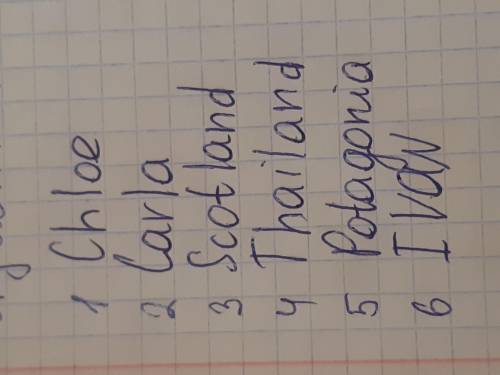 1 Chloe
2 Carla
3 Scotland
4 Thailand
5 Potagonia
6 IVAN